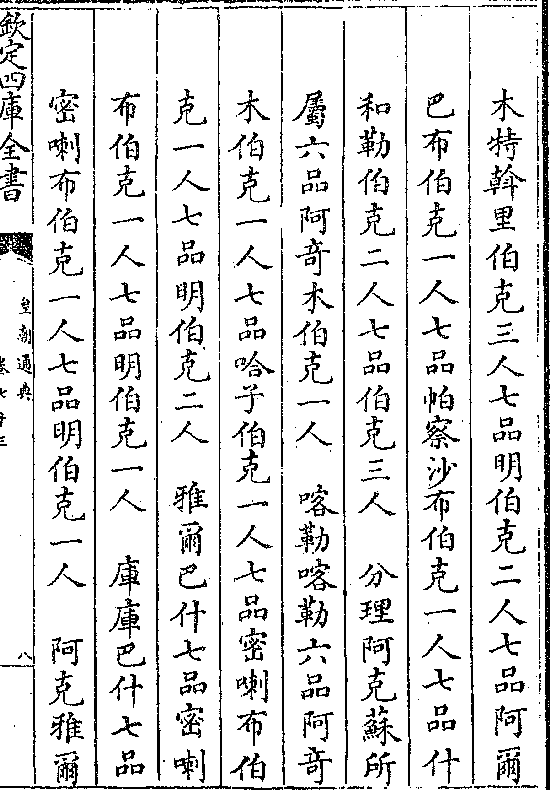 木特斡里伯克三人七品明伯克二人七品阿爾
巴布伯克一人七品帕察沙布伯克一人七品什
和勒伯克二人七品伯克三人　分理阿克蘇所
屬六品阿竒木伯克一人　喀勒喀勒六品阿竒
木伯克一人七品哈子伯克一人七品密喇布伯
克一人七品明伯克二人　雅爾巴什七品密喇
布伯克一人七品明伯克一人　庫庫巴什七品
密喇布伯克一人七品明伯克一人　阿克雅爾
欽定四庫全書
皇朝通典
八